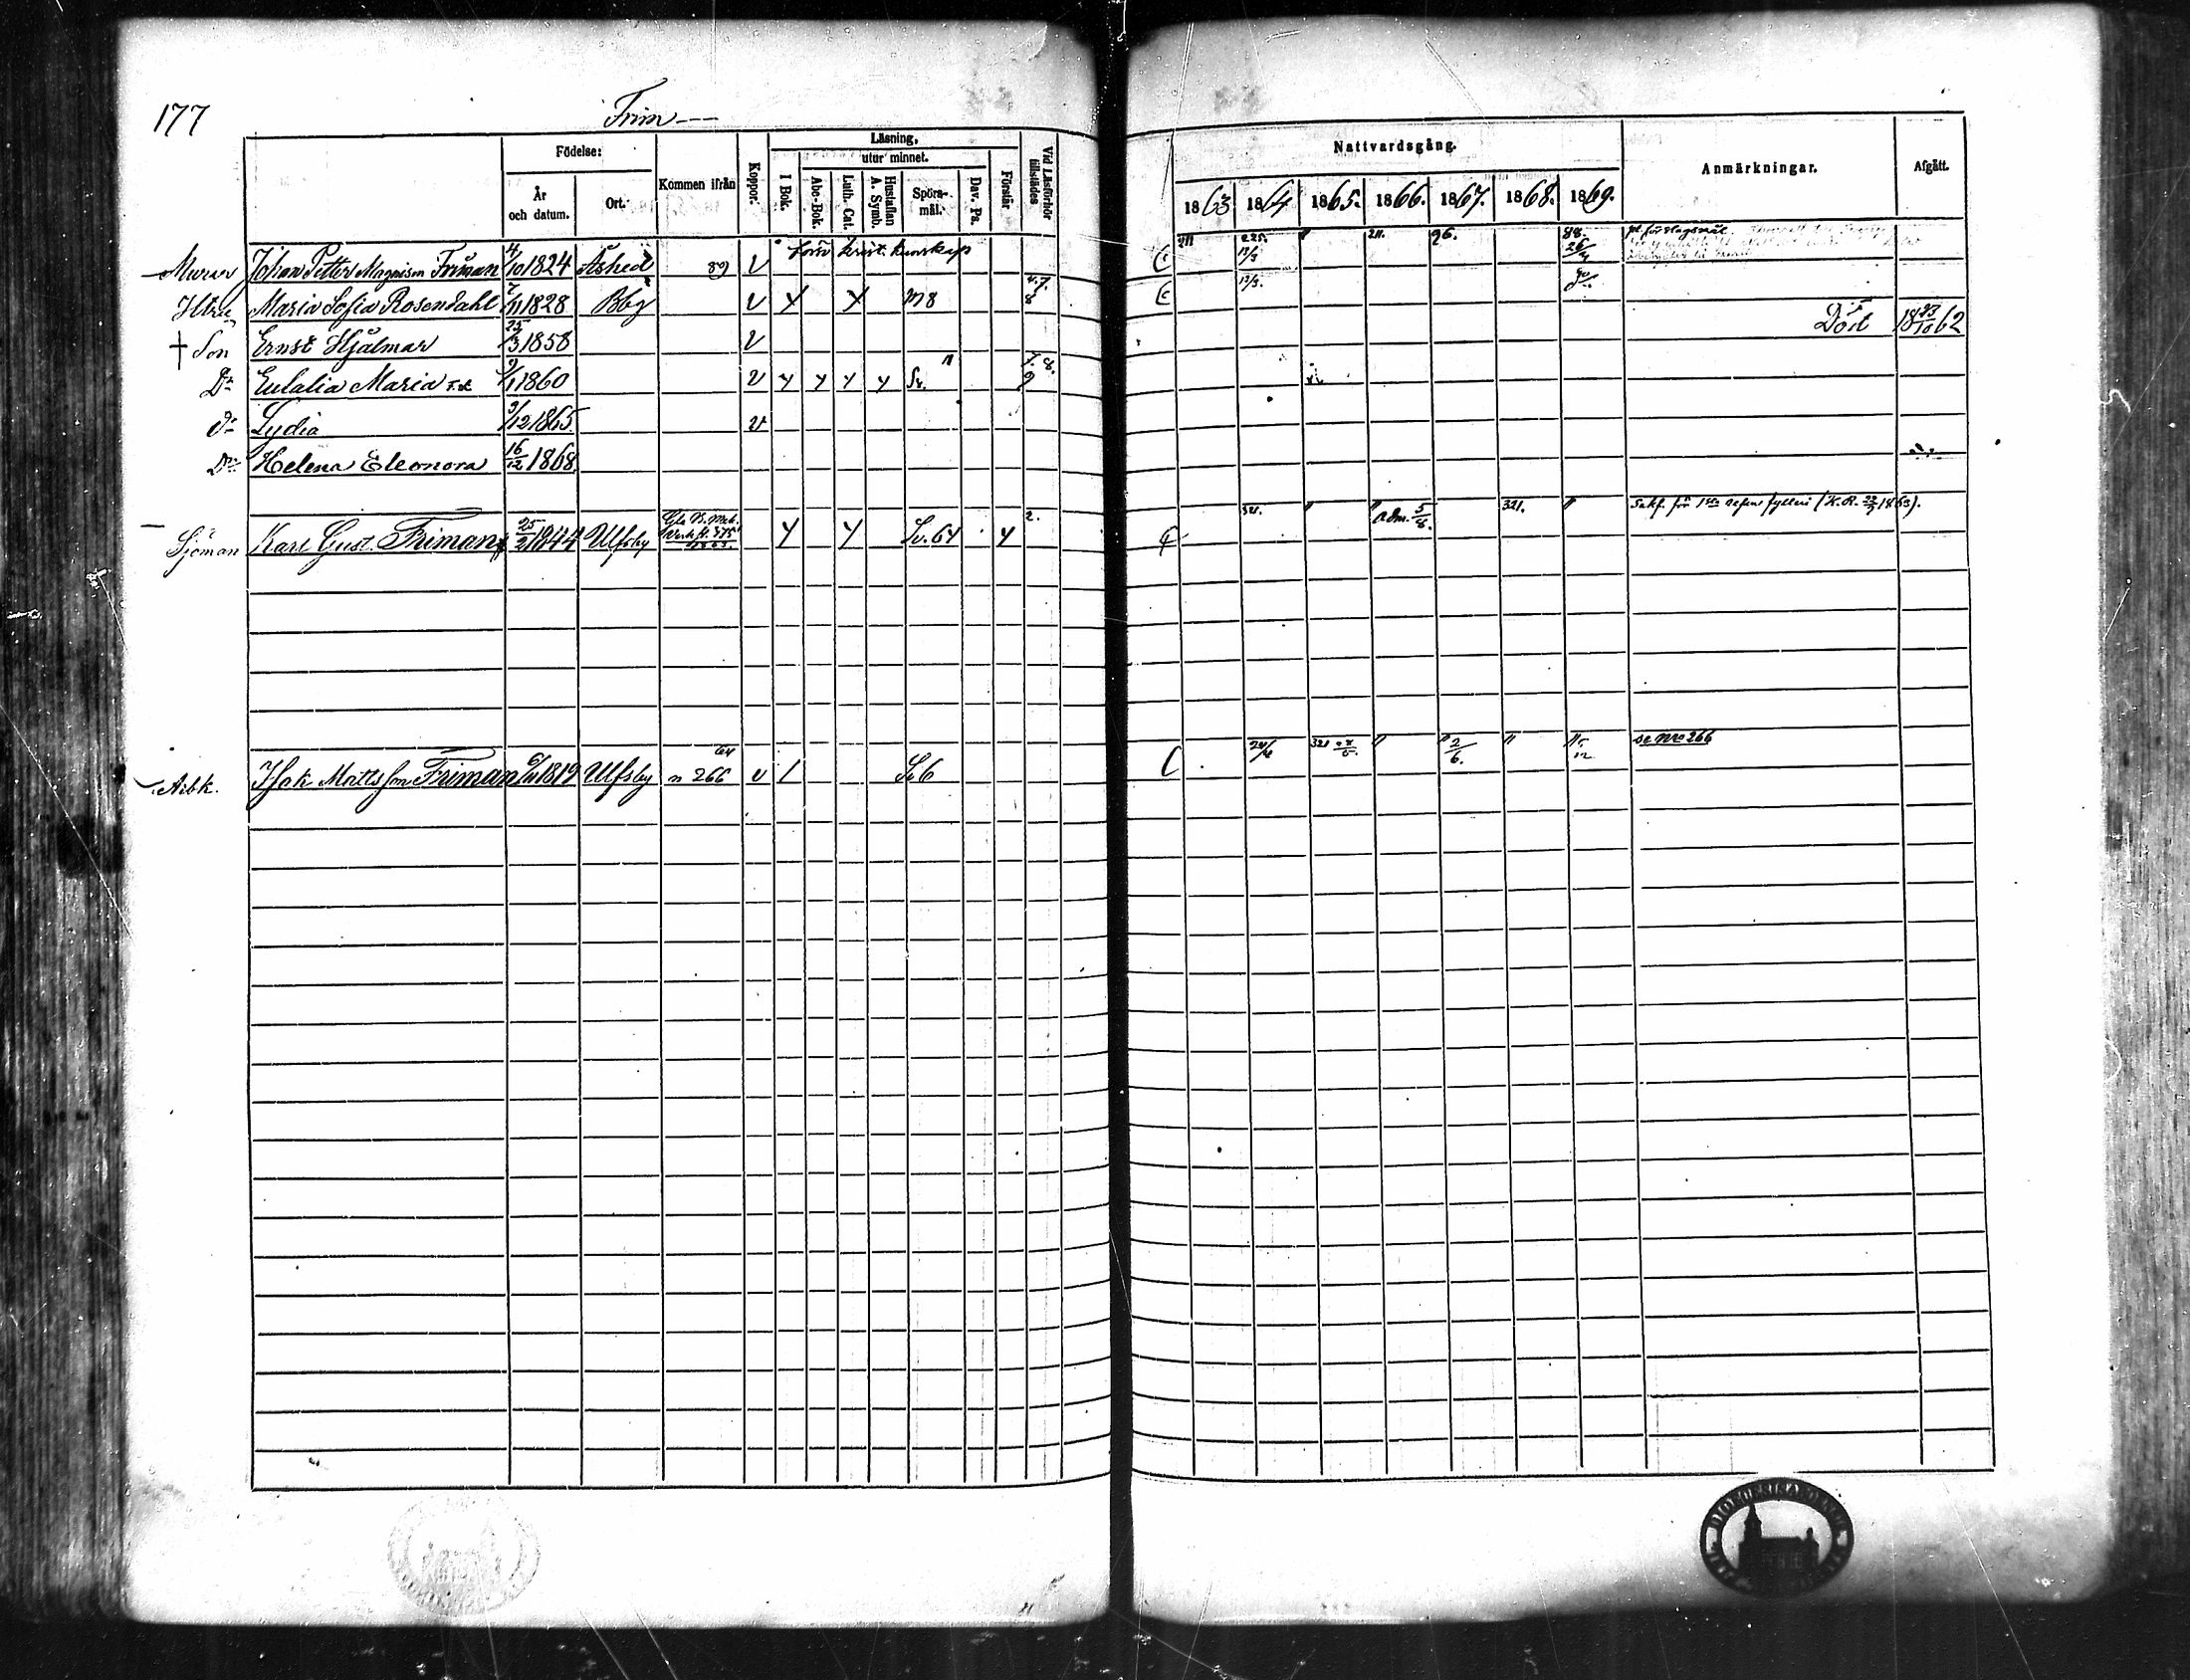 177
Frim
Födelse:
År och datum.
Ort.
Kommen ifrån
Koppor.
Läsning,
utur minnet.
I Bok.
Abc-Bok.
Luth. Cat.
Hustaflan A. Symb.
Spörs-mål.
Dav. Ps.
Förstår
Vid Läsförhör tillstädes
Nattvardsgång.
1863 1864 1865. 1866. 1867. 1868. 1869.
Anmärkningar.
Afgått.
Murar Johan Petter Magnison Friman 4/10 1824 Åshed 89 v förv krist. kunskap 211 225. 12/3 " 211. 96. 88. 26/4
Hstru Maria Sofia Rosendahl 7/11 1828 Bbg v y y M8 8 12/3.
† Son Ernst Hjalmar 25/3 1858 v Död 18 23/10 62
Dr Eulalia Maria 9/1 1860 v y y y y Sv. 7. 8. 9
dr Lydia 9/12 1865 v
Dr Helena Eleonora 16/12 1868
Sjöman Karl Gust. Friman 25/2 1844 Ulfsby y y Sv. 64 y 2. 321. " " Adm. 5/8. 321. " Sakf. för 1sta resan fylleri (K.R. 22/7 1863).
Arbk. Isak Mattsson Friman 1819 Ulfsby n 266 64 v / Sv 6 24/4 321 " " 2/6. " " se nro 266